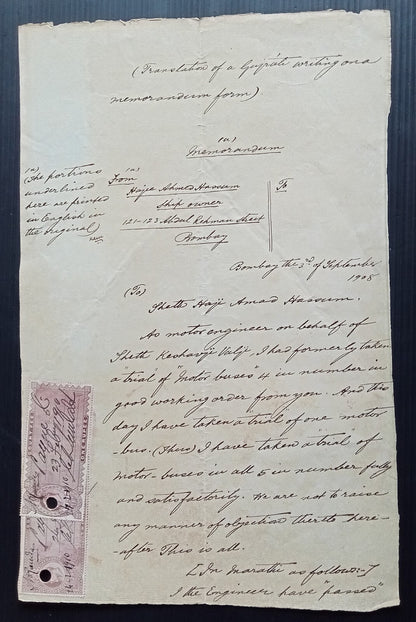 (Translation of a Gujrati writing on a
memorandum form)
(a)
Memorandum
(a)
(The portions
underlined
here are printed
in English in
the original)
(a)
From
Hajee Ahmed Hassum
Ship owner
121-123 Abdul Rehman Street
Bombay
To
Bombay the 3rd of September
1908
(To)
Sheth Haji Amad Hassum.
As motor engineer on behalf of
Sheth Keshavji Valji, I had formerly taken
a "trial" of "Motor buses" 4 in number in
good working order from you. And this
day I have taken a trial of one motor
-bus. (Thus) I have taken a "trial" of
motor-buses in all 5 in number fully
and satisfactorily. We are not to raise
any manner of objection thereto here-
-after This is all.
[In Marathi as follows:-]
I the Engineer have "passed"